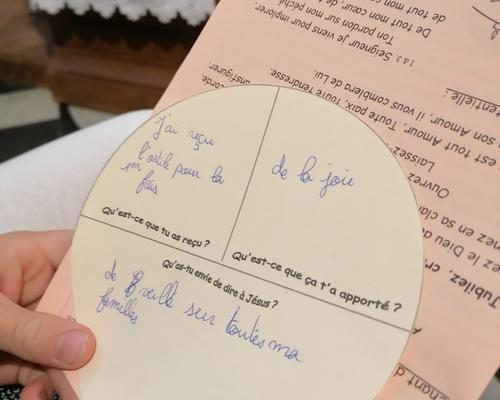 j'ai reçu
l'ostile pour la
1er fois
Qu'est-ce que tu as reçu ?
de la joie
Qu'est-ce que ça t'a apporté ?
Qu'as-tu envie de dire à Jésus ?
de veille sur toutes ma
familles
1 & 3 Seigneur je viens pour implorer
Ton pardon sur mon péché
De tout mon cœur, de
de tout mon
entielle :
son Amour, il vous comblera de Lui.
est tout Amour, Toute paix, Toute tendresse,
Laissez-
Ouvrez
ez en sa clar
ez le Dieu de
Jubilez, cr
chant d